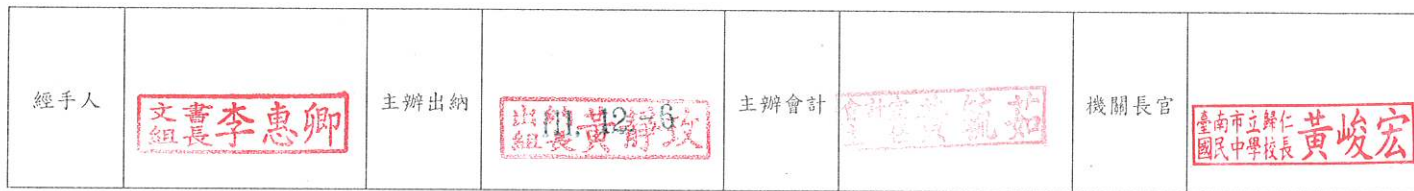 經手人
文書組長 李惠卿
主辦出納
出納組長 黃靜
111. 12. -6
主辦會計
會計室主任
機關長官
臺南市立歸仁國民中學校長 黃峻宏